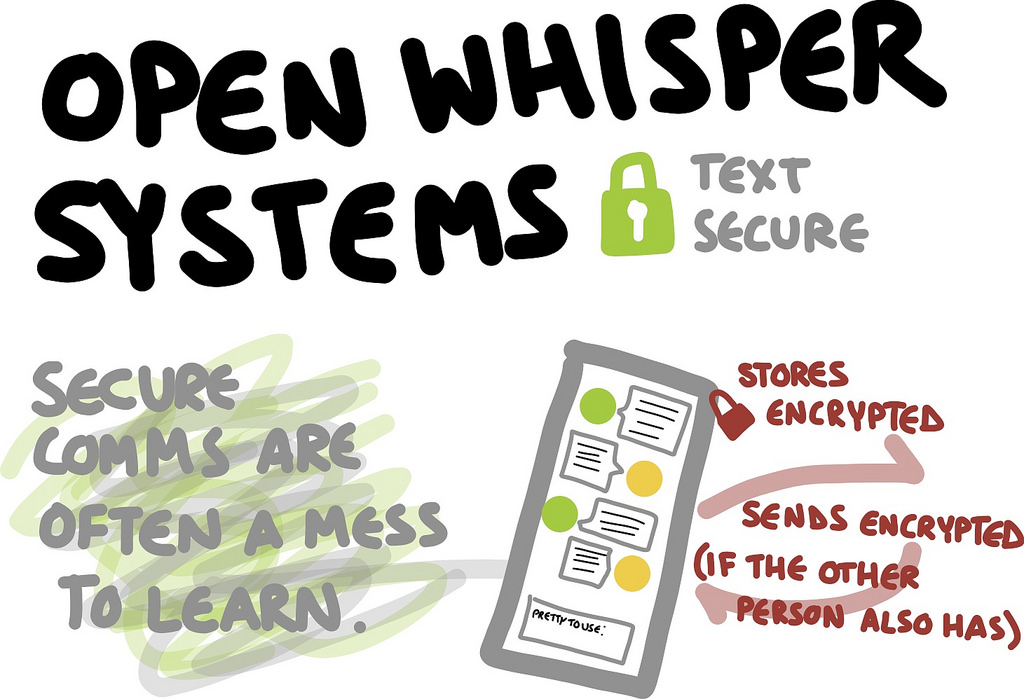 OPEN WHISPER
SYSTEMS
TEXT
SECURE
SECURE
COMMS ARE
OFTEN A MESS
TO LEARN.
PRETTY TO USE:
STORES
ENCRYPTED
SENDS ENCRYPTED
(IF THE OTHER
PERSON ALSO HAS)